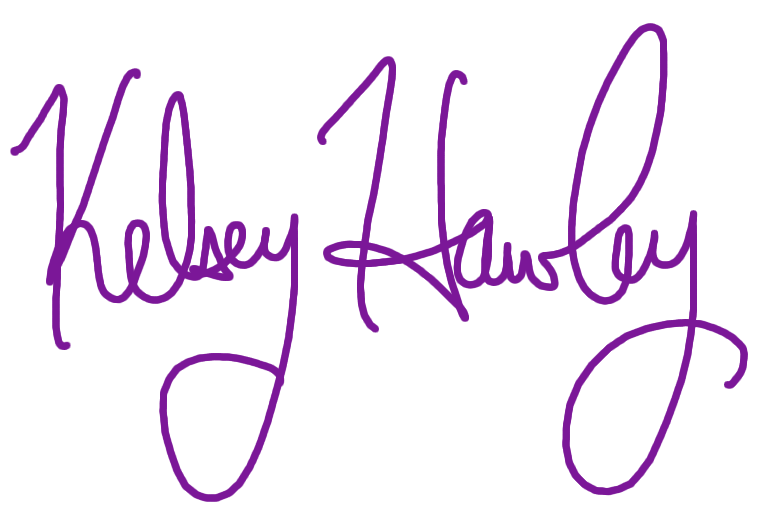 Kelsey Hawley